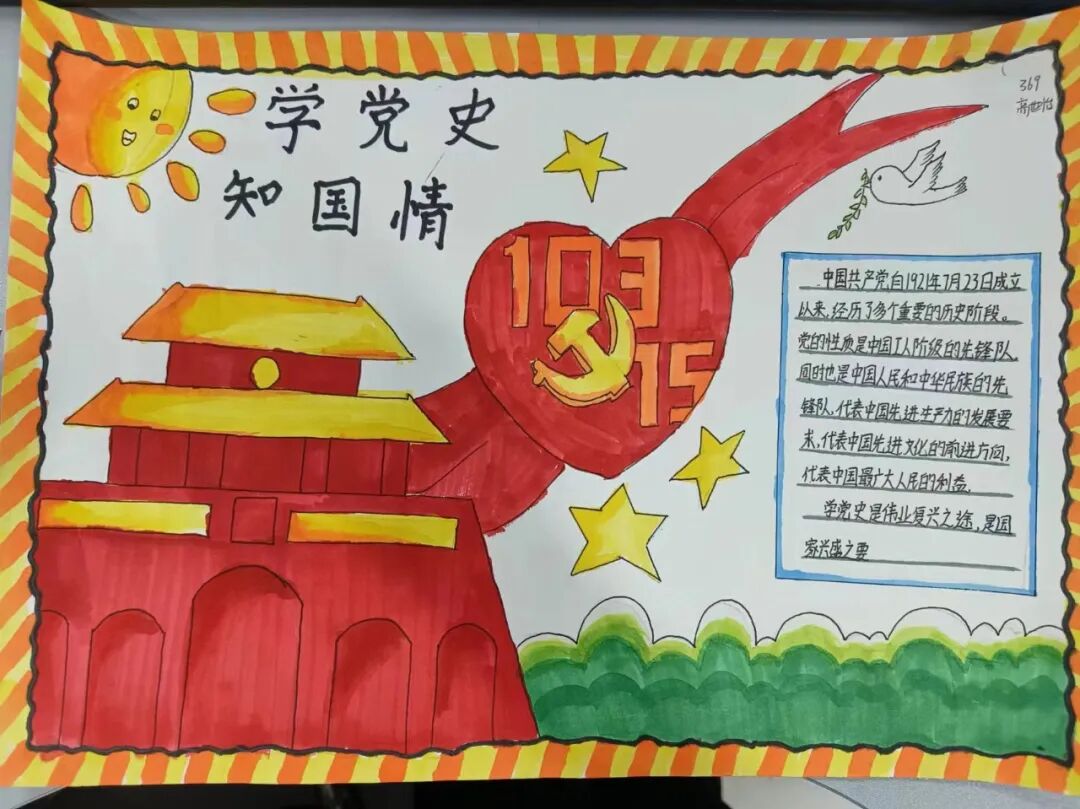 学党史
知国情
369
103
15
中国共产党自1921年7月23日成立
以来,经历了多个重要的历史阶段。
党的性质是中国工人阶级的先锋队,
同时也是中国人民和中华民族的先
锋队,代表中国先进生产力的发展要
求,代表中国先进文化的前进方向,
代表中国最广大人民的利益.
学党史是伟业复兴之途,是国
家兴盛之要